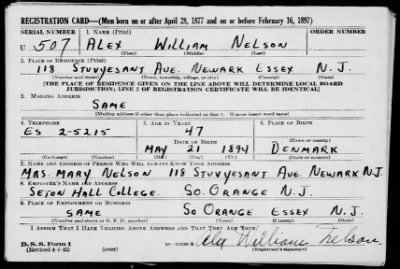 REGISTRATION CARD—(Men born on or after April 28, 1877 and on or before February 16, 1897)
SERIAL NUMBER 1. NAME (Print) ORDER NUMBER
U 507 ALEX WILLIAM NELSON
(First) (Middle) (Last)
2. PLACE OF RESIDENCE (Print)
118 STUVYESANT AVE. NEWARK ESSEX N. J.
(Number and street) (Town, township, village, or city) (County) (State)
[THE PLACE OF RESIDENCE GIVEN ON THE LINE ABOVE WILL DETERMINE LOCAL BOARD
JURISDICTION; LINE 2 OF REGISTRATION CERTIFICATE WILL BE IDENTICAL]
3. MAILING ADDRESS
SAME
(Mailing address if other than place indicated on line 2. If same insert word same)
4. TELEPHONE 5. AGE IN YEARS 6. PLACE OF BIRTH
ES 2-5215 47
DATE OF BIRTH (Town or county)
MAY 21 1894 DENMARK
(Exchange) (Number) (Mo.) (Day) (Yr.) (State or country)
7. NAME AND ADDRESS OF PERSON WHO WILL ALWAYS KNOW YOUR ADDRESS
MRS. MARY NELSON 118 STUVYESANT AVE. NEWARK N.J.
8. EMPLOYER'S NAME AND ADDRESS
SETON HALL COLLEGE. SO. ORANGE N. J.
9. PLACE OF EMPLOYMENT OR BUSINESS
SAME SO ORANGE ESSEX N. J.
(Number and street or R. F. D. number) (Town) (County) (State)
I AFFIRM THAT I HAVE VERIFIED ABOVE ANSWERS AND THAT THEY ARE TRUE.
D. S. S. Form 1
(Revised 4-1-42) (over) Alex William Nelson
(Registrant's signature)